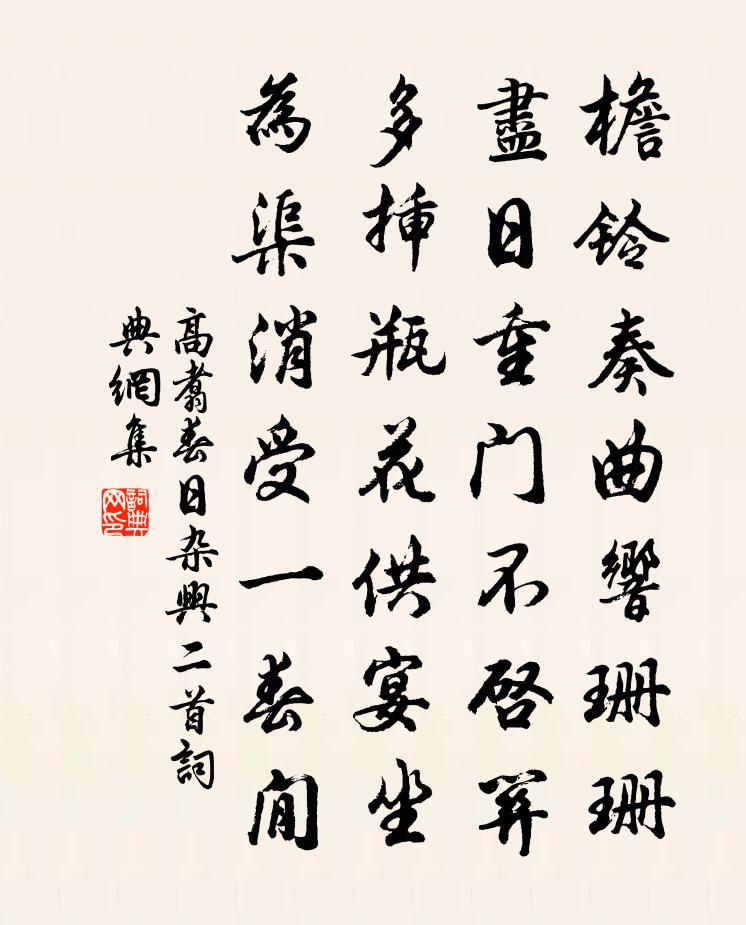 檐鈴奏曲響珊珊
盡日重門不啓關
多插瓶花供宴坐
為渠消受一春閒
高翥春日杂興二首詞
典網集
詞典网印